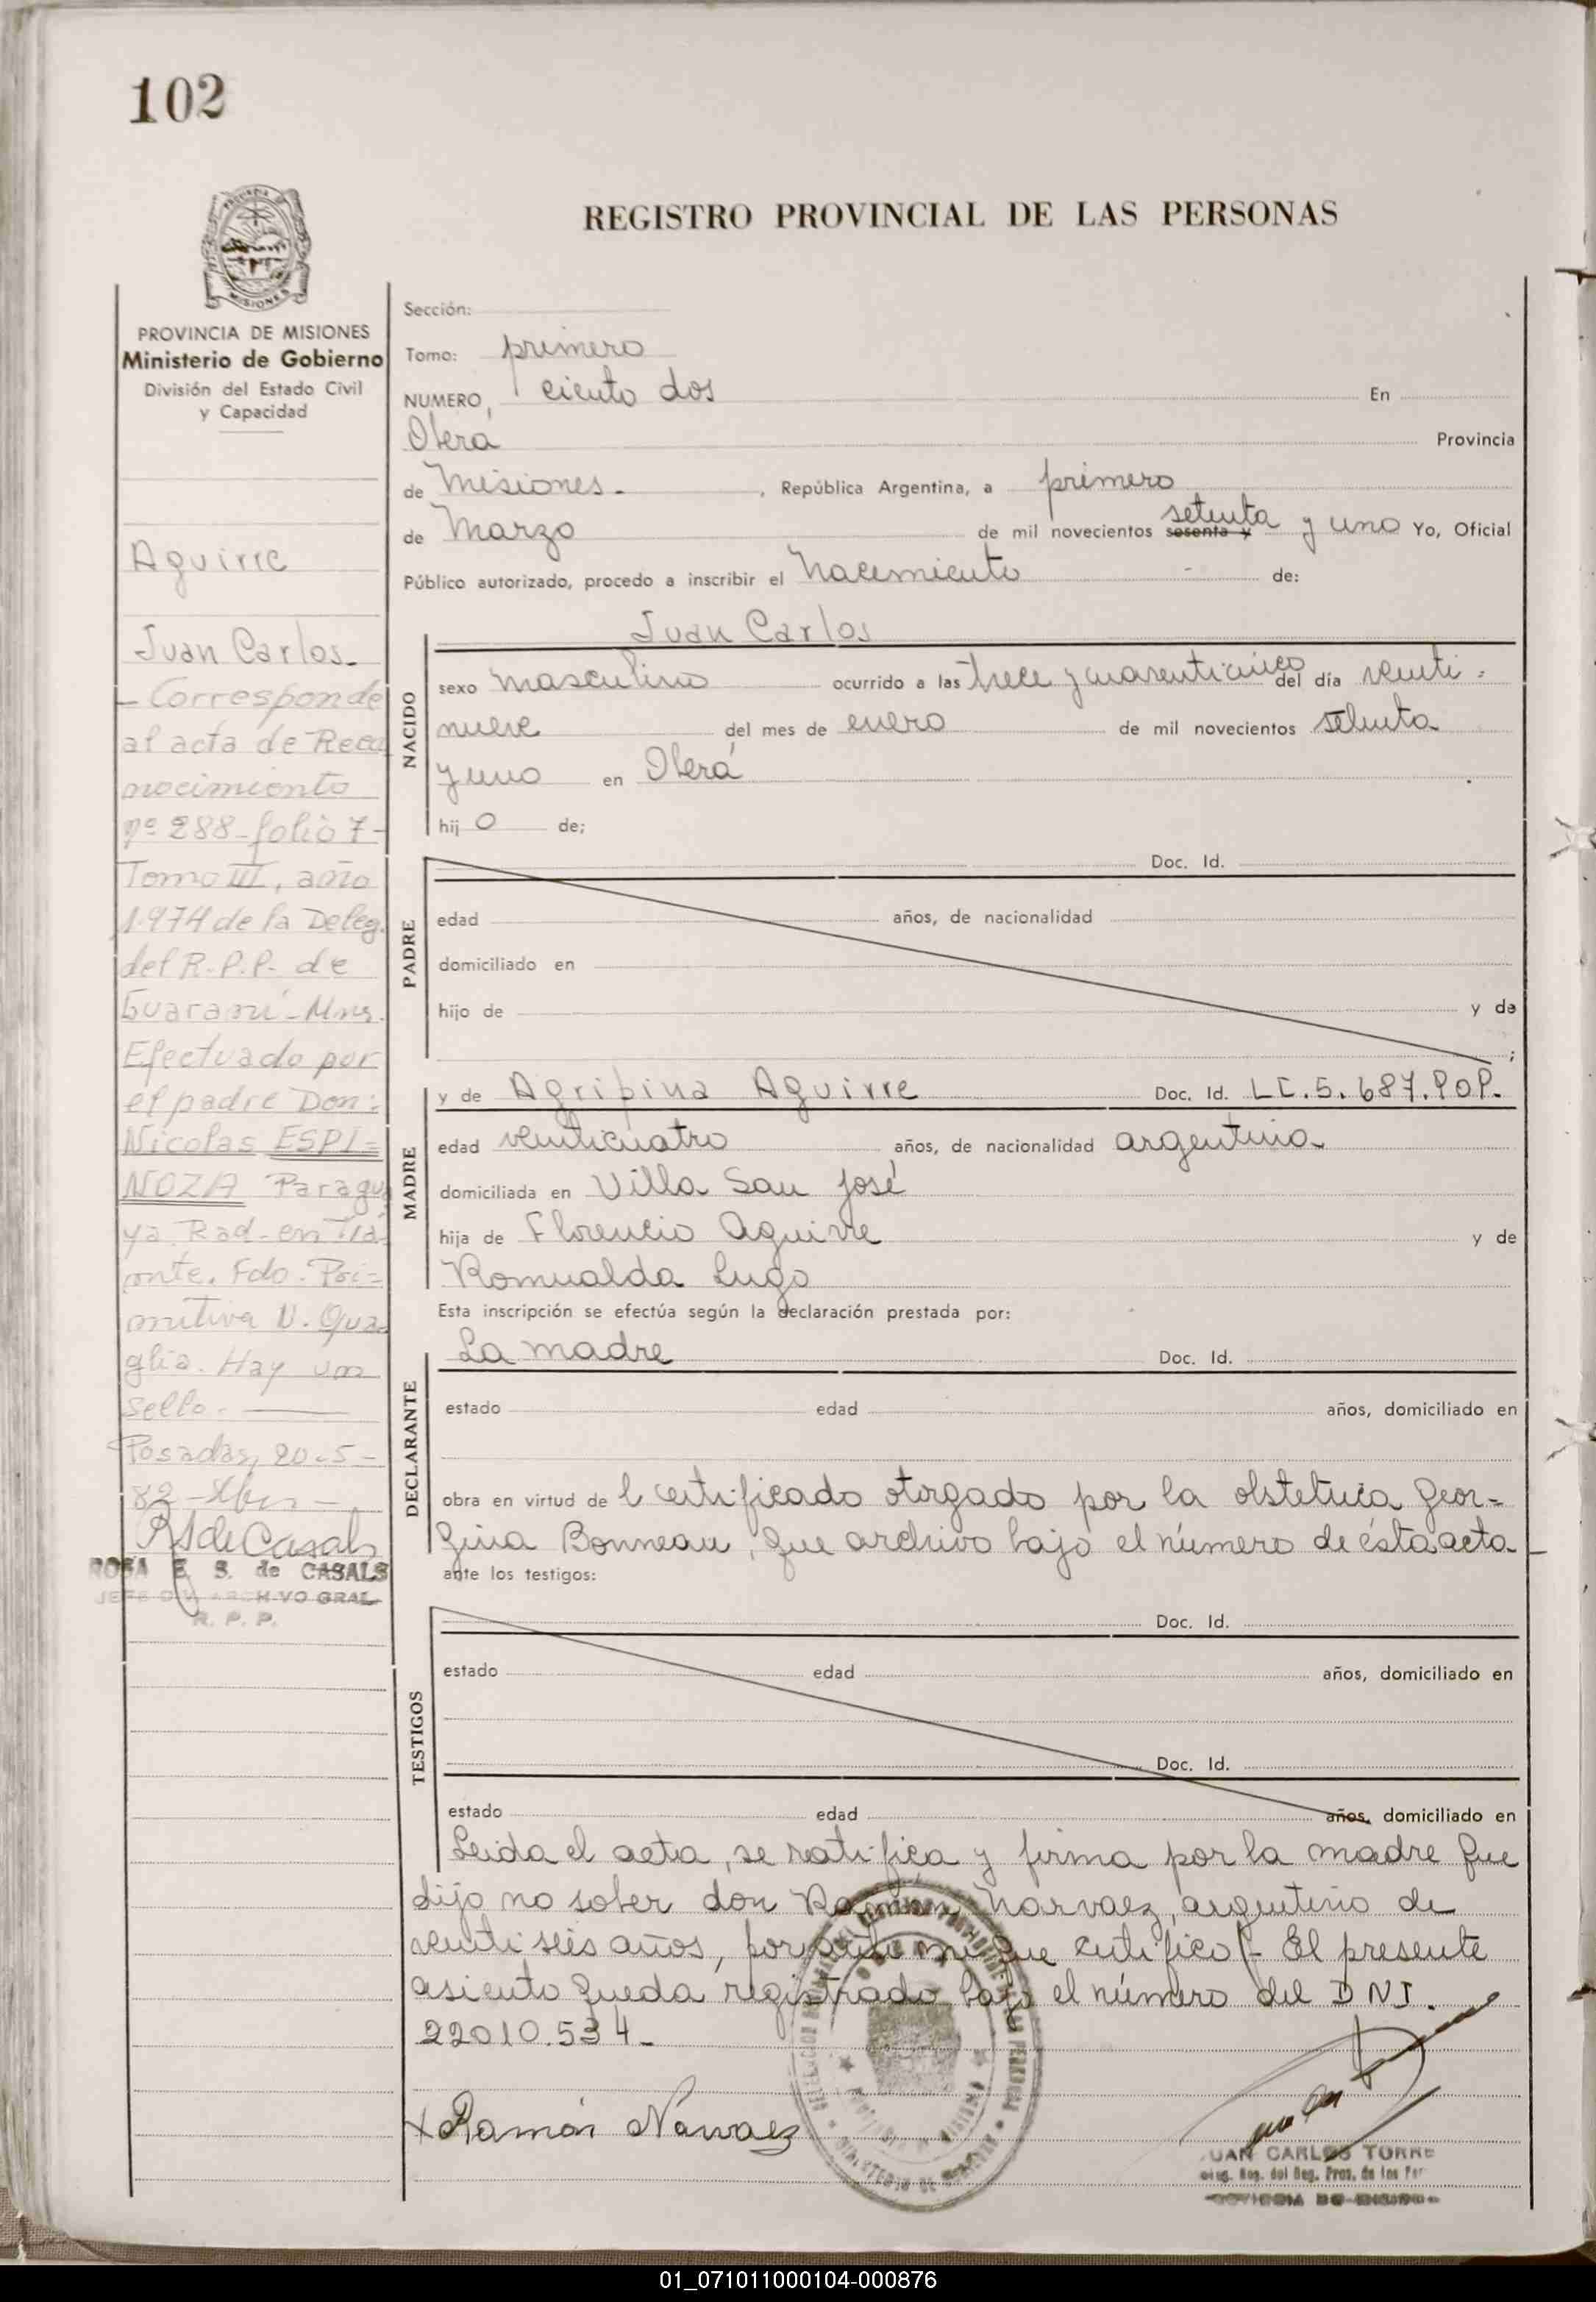 102
PROVINCIA DE MISIONES
Ministerio de Gobierno
División del Estado Civil
y Capacidad
Aguirre
Juan Carlos.
- Corresponde
al acta de Reco
nocimiento
nº 288 - folio 7 -
Tomo III, año
1.974 de la Deleg.
del R.P.P. de
Guaraní - Mns.
Efectuado por
el padre Don:
Nicolas ESPI=
NOZA Paragu
ya Rad. en Tra
mte. Fdo. Pri=
mitiva N. Qua
glia. Hay un
sello.
Posadas, 20-5-
82
RSdeCasals
ROSA E. S. de CASALS
JEFE DIV. ARCHIVO GRAL
R. P. P.
REGISTRO PROVINCIAL DE LAS PERSONAS
Sección:
Tomo: primero
NUMERO, ciento dos En
Oberá Provincia
de Misiones. , República Argentina, a primero
de Marzo de mil novecientos sesenta y setenta y uno Yo, Oficial
Público autorizado, procedo a inscribir el nacimiento de:
Juan Carlos
NACIDO
sexo masculino ocurrido a las trece y cuarenticinco del día venti=
nueve del mes de enero de mil novecientos setenta
y uno en Oberá
hij o de;
PADRE
Doc. Id.
edad años, de nacionalidad
domiciliado en
hijo de y de
;
MADRE
y de Agripina Aguirre Doc. Id. LC. 5. 687. 909.
edad venticuatro años, de nacionalidad argentina
domiciliada en Villa San José
hija de Florencio Aguirre y de
Romualda Lugo
Esta inscripción se efectúa según la declaración prestada por:
DECLARANTE
La madre Doc. Id.
estado edad años, domiciliado en
obra en virtud de l certificado otorgado por la obstetrica Geor=
gina Bonneau, que archivo bajo el número de ésta acta
ante los testigos:
TESTIGOS
Doc. Id.
estado edad años, domiciliado en
Doc. Id.
estado edad años, domiciliado en
Leida el acta, se ratifica y firma por la madre que
dijo no saber don Ramón Narvaez, argentino de
venti seis años, por ante mi que certifico.- El presente
asiento queda registrado bajo el número del DNI.
22010.534.-
x Ramón Narvaez
JUAN CARLOS TORRE
01_071011000104-000876